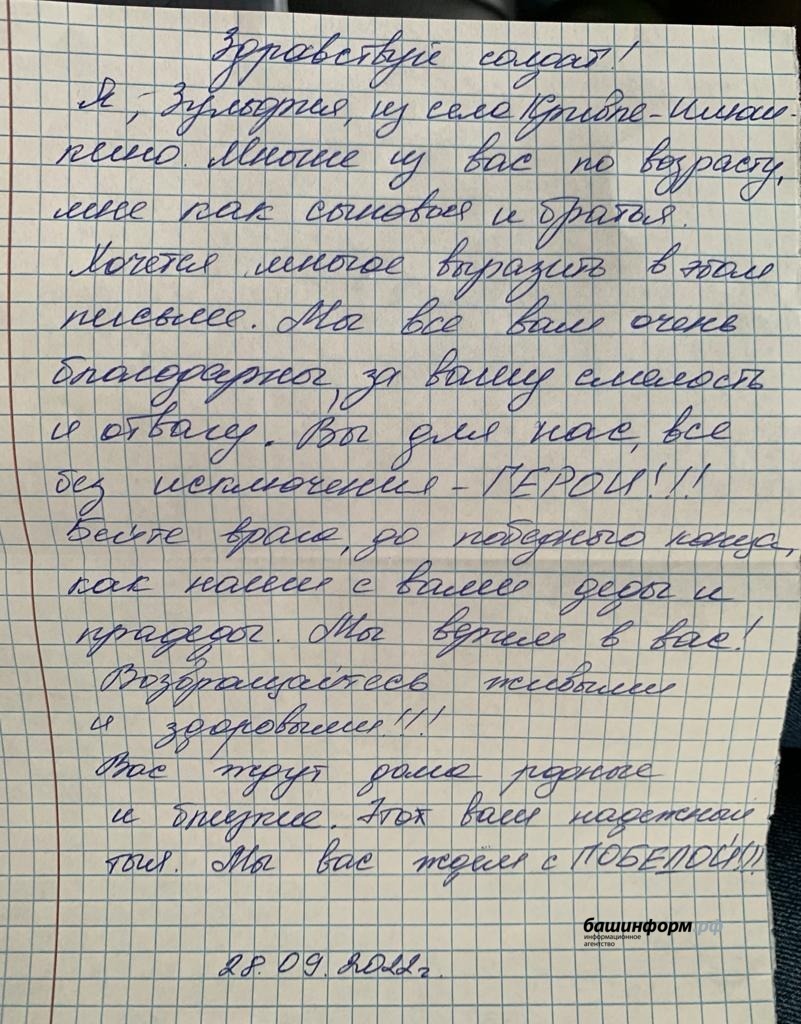 Здравствуй солдат!
Я, Зульфия, из села Кривле-Илюш-
кино. Многие из вас по возрасту,
мне как сыновья и братья.
Хочется многое выразить в этом
письме. Мы все вам очень
благодарны, за вашу смелость
и отвагу. Вы для нас, все
без исключения - ГЕРОИ!!!
Бейте врага, до победного конца,
как наши с вами деды и
прадеды. Мы верим в вас!
Возвращайтесь живыми
и здоровыми!!!
Вас ждут дома родные
и близкие. Этот ваш надежный
тыл. Мы вас ждём с ПОБЕДОЙ!!!
башинформ.рф
информационное
агентство
28.09.2022г.